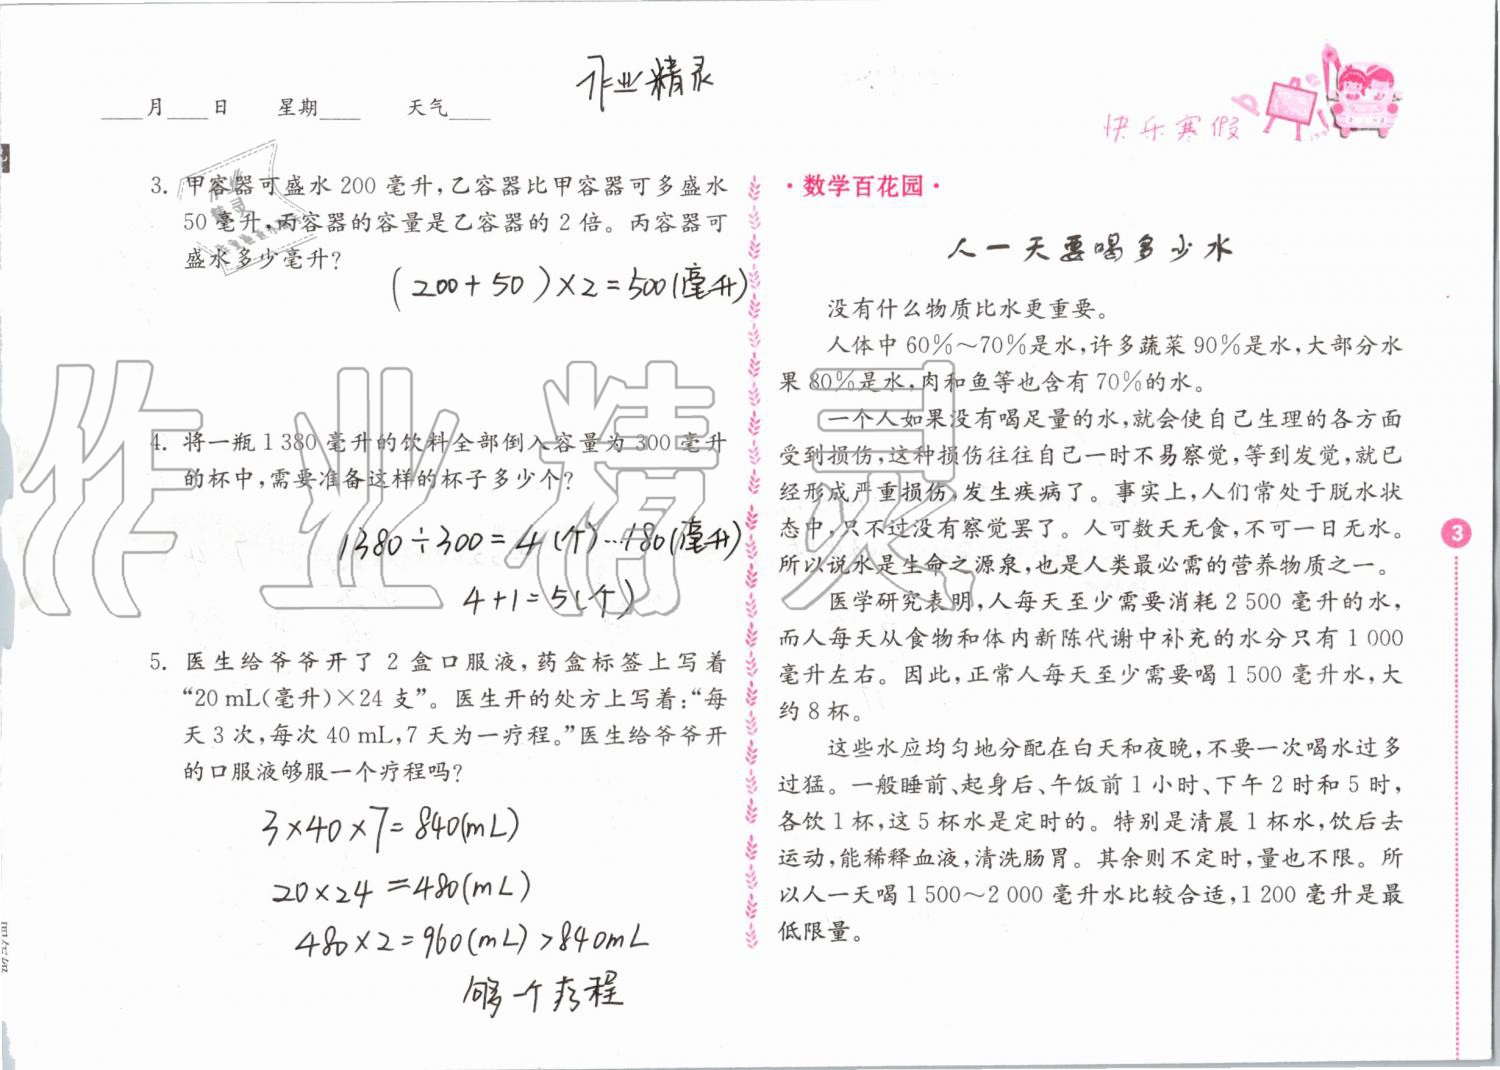 作业精灵
____月____日 星期____ 天气____
快乐寒假
3. 甲容器可盛水 200 毫升,乙容器比甲容器可多盛水
50 毫升,丙容器的容量是乙容器的 2 倍。丙容器可
盛水多少毫升?
(200+50)×2=500(毫升)
4. 将一瓶 1 380 毫升的饮料全部倒入容量为 300 毫升
的杯中,需要准备这样的杯子多少个?
1380÷300=4(个)…180(毫升)
4+1=5(个)
5. 医生给爷爷开了 2 盒口服液,药盒标签上写着
“20 mL(毫升)×24 支”。医生开的处方上写着:“每
天 3 次,每次 40 mL,7 天为一疗程。”医生给爷爷开
的口服液够服一个疗程吗?
3×40×7=840(mL)
20×24=480(mL)
480×2=960(mL)>840mL
够一个疗程
·数学百花园·
人一天要喝多少水
没有什么物质比水更重要。
人体中 60%～70%是水,许多蔬菜 90%是水,大部分水
果 80%是水,肉和鱼等也含有 70%的水。
一个人如果没有喝足量的水,就会使自己生理的各方面
受到损伤,这种损伤往往自己一时不易察觉,等到发觉,就已
经形成严重损伤,发生疾病了。事实上,人们常处于脱水状
态中,只不过没有察觉罢了。人可数天无食,不可一日无水。
所以说水是生命之源泉,也是人类最必需的营养物质之一。
医学研究表明,人每天至少需要消耗 2 500 毫升的水,
而人每天从食物和体内新陈代谢中补充的水分只有 1 000
毫升左右。因此,正常人每天至少需要喝 1 500 毫升水,大
约 8 杯。
这些水应均匀地分配在白天和夜晚,不要一次喝水过多
过猛。一般睡前、起身后、午饭前 1 小时、下午 2 时和 5 时,
各饮 1 杯,这 5 杯水是定时的。特别是清晨 1 杯水,饮后去
运动,能稀释血液,清洗肠胃。其余则不定时,量也不限。所
以人一天喝 1 500～2 000 毫升水比较合适,1 200 毫升是最
低限量。
3
作业精灵